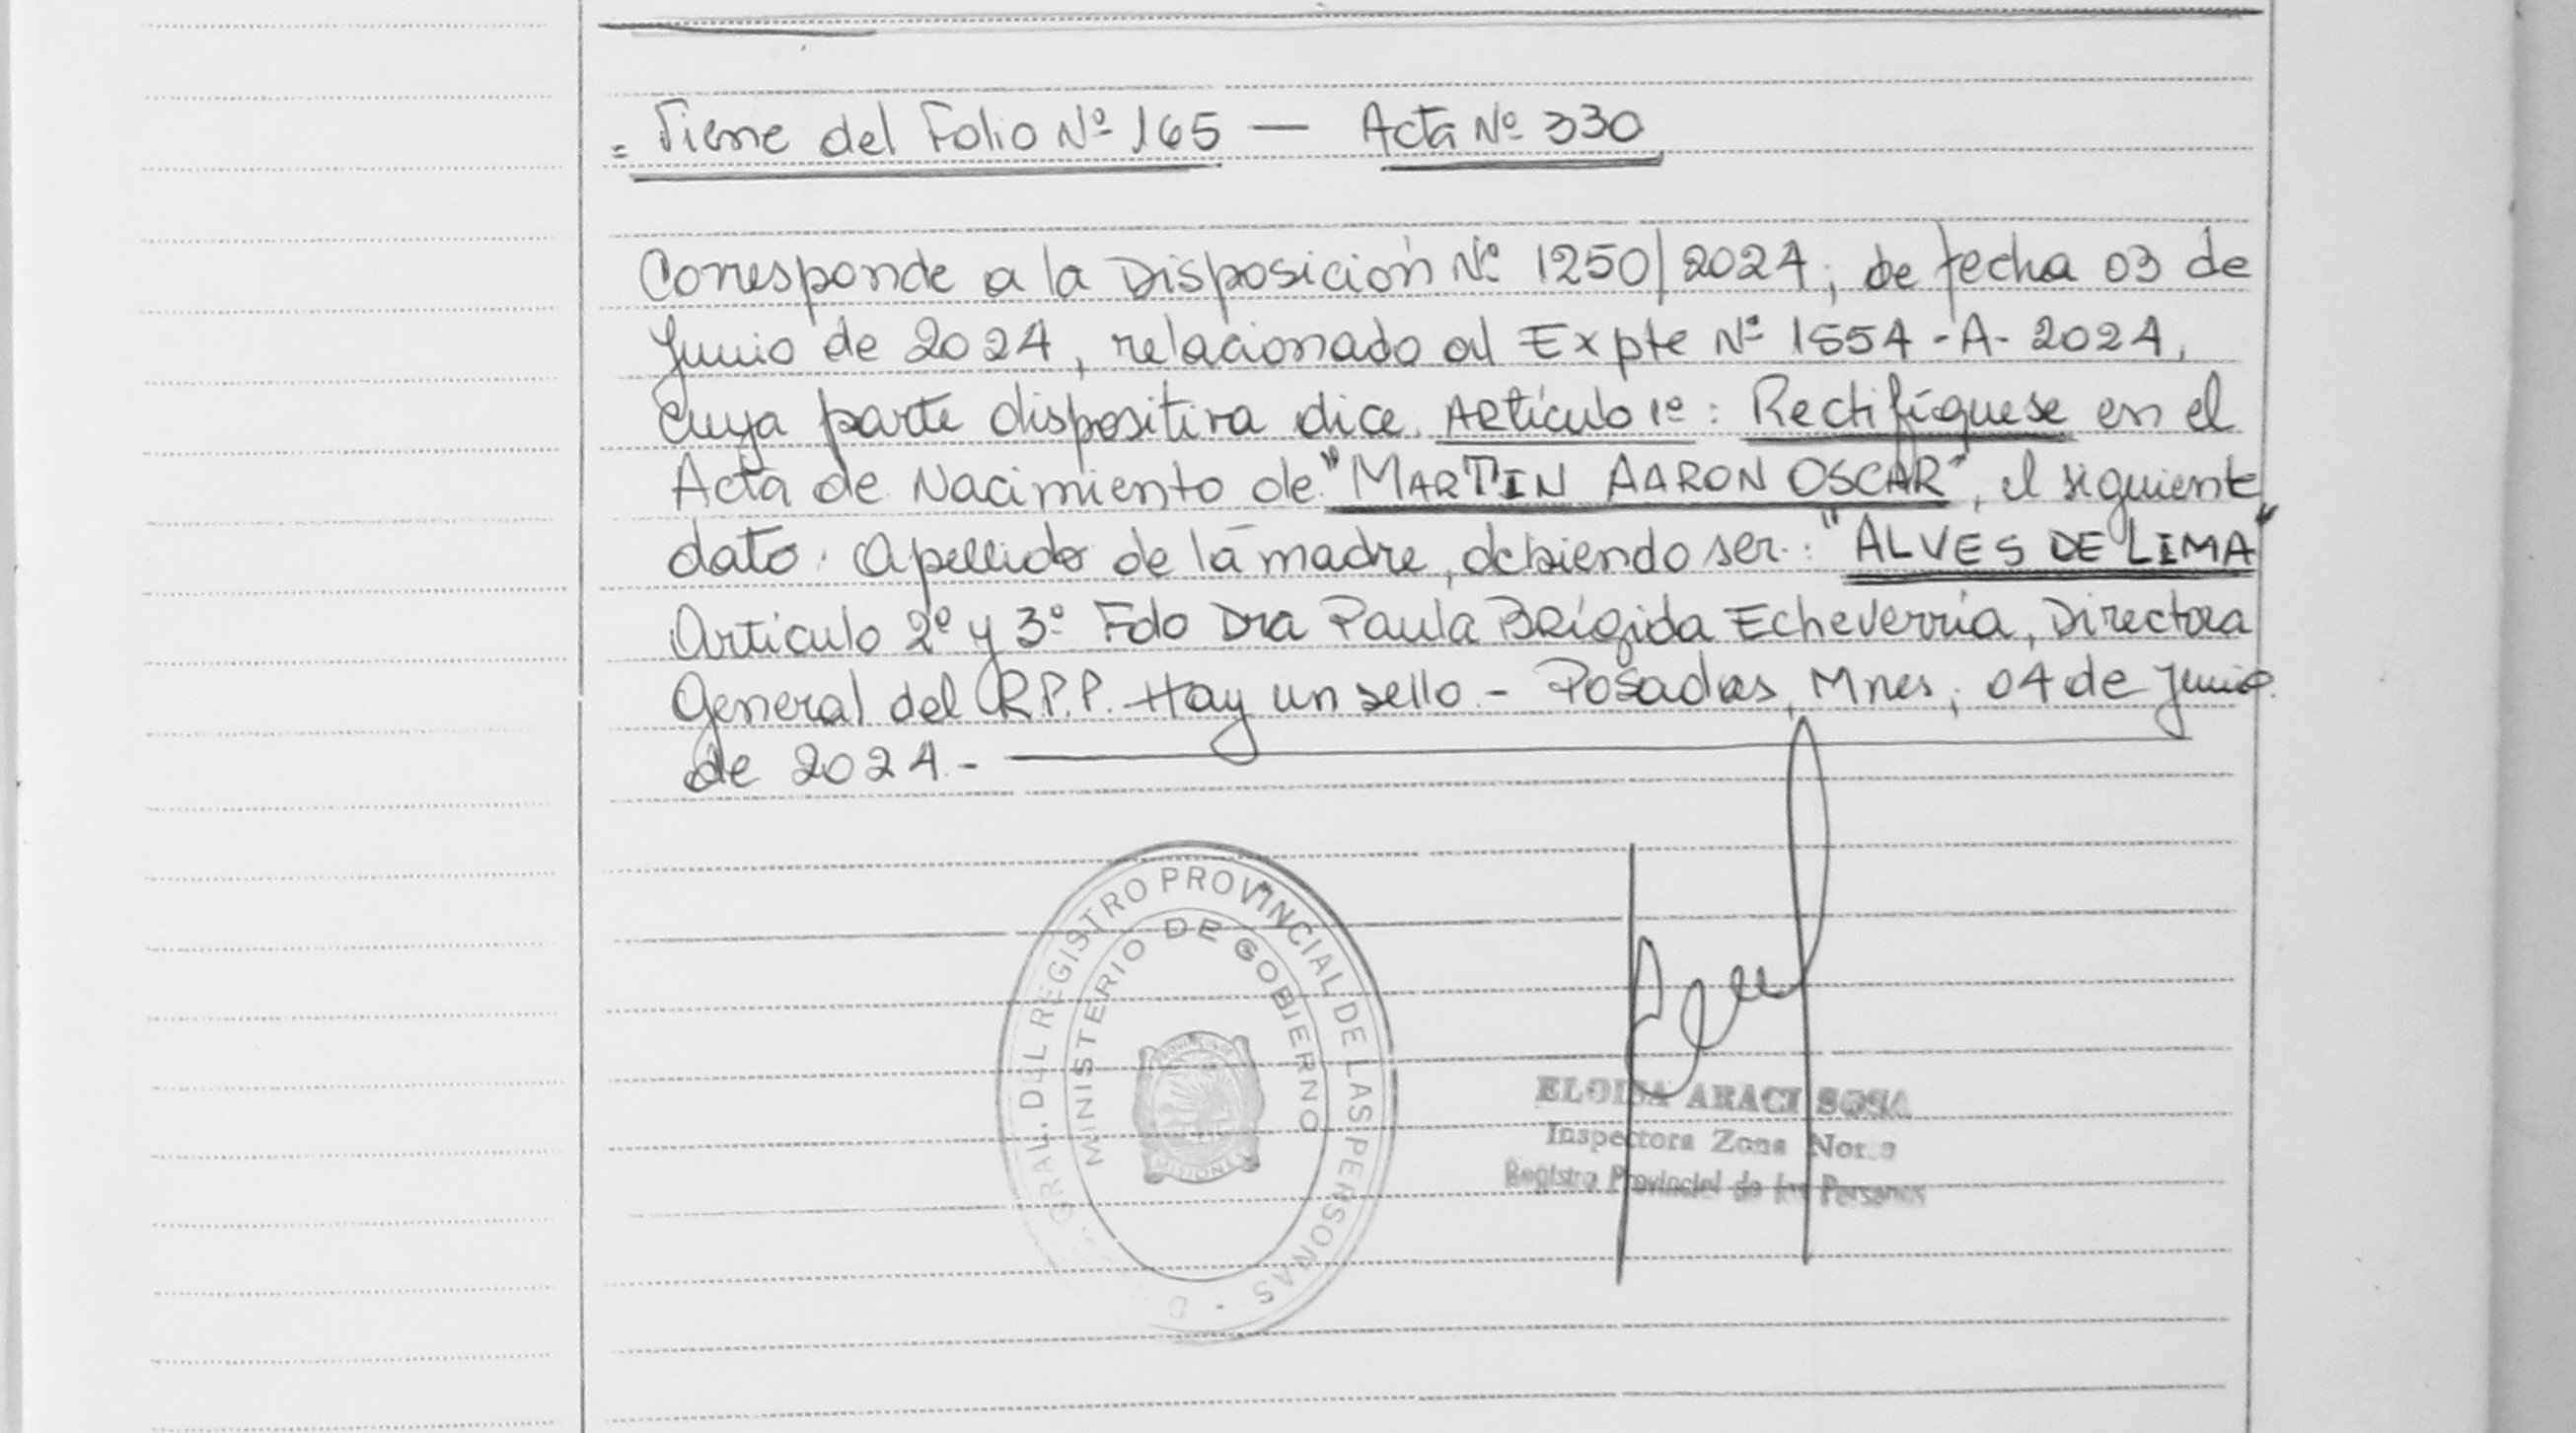 = Viene del Folio Nº 165 — Acta Nº 330
Corresponde a la Disposición Nº 1250/2024, de fecha 03 de
Junio de 2024, relacionado al Expte Nº 1554-A-2024,
cuya parte dispositiva dice. Artículo 1º: Rectifíquese en el
Acta de Nacimiento de "MARTIN AARON OSCAR", el siguiente
dato: Apellido de la madre, debiendo ser: "ALVES DE LIMA"
Artículo 2º y 3º Fdo Dra Paula Brígida Echeverría, Directora
General del R.P.P. Hay un sello - Posadas, Mnes, 04 de Junio
de 2024.-
GRAL. DEL REGISTRO PROVINCIAL DE LAS PERSONAS
MINISTERIO DE GOBIERNO
MISIONES
ELOISA ARACI SOSA
Inspectora Zona
Registro Provincial de las Personas